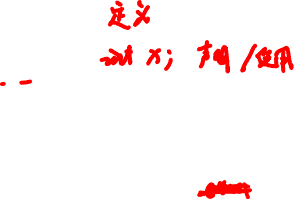 定义
int x; 声明/使用